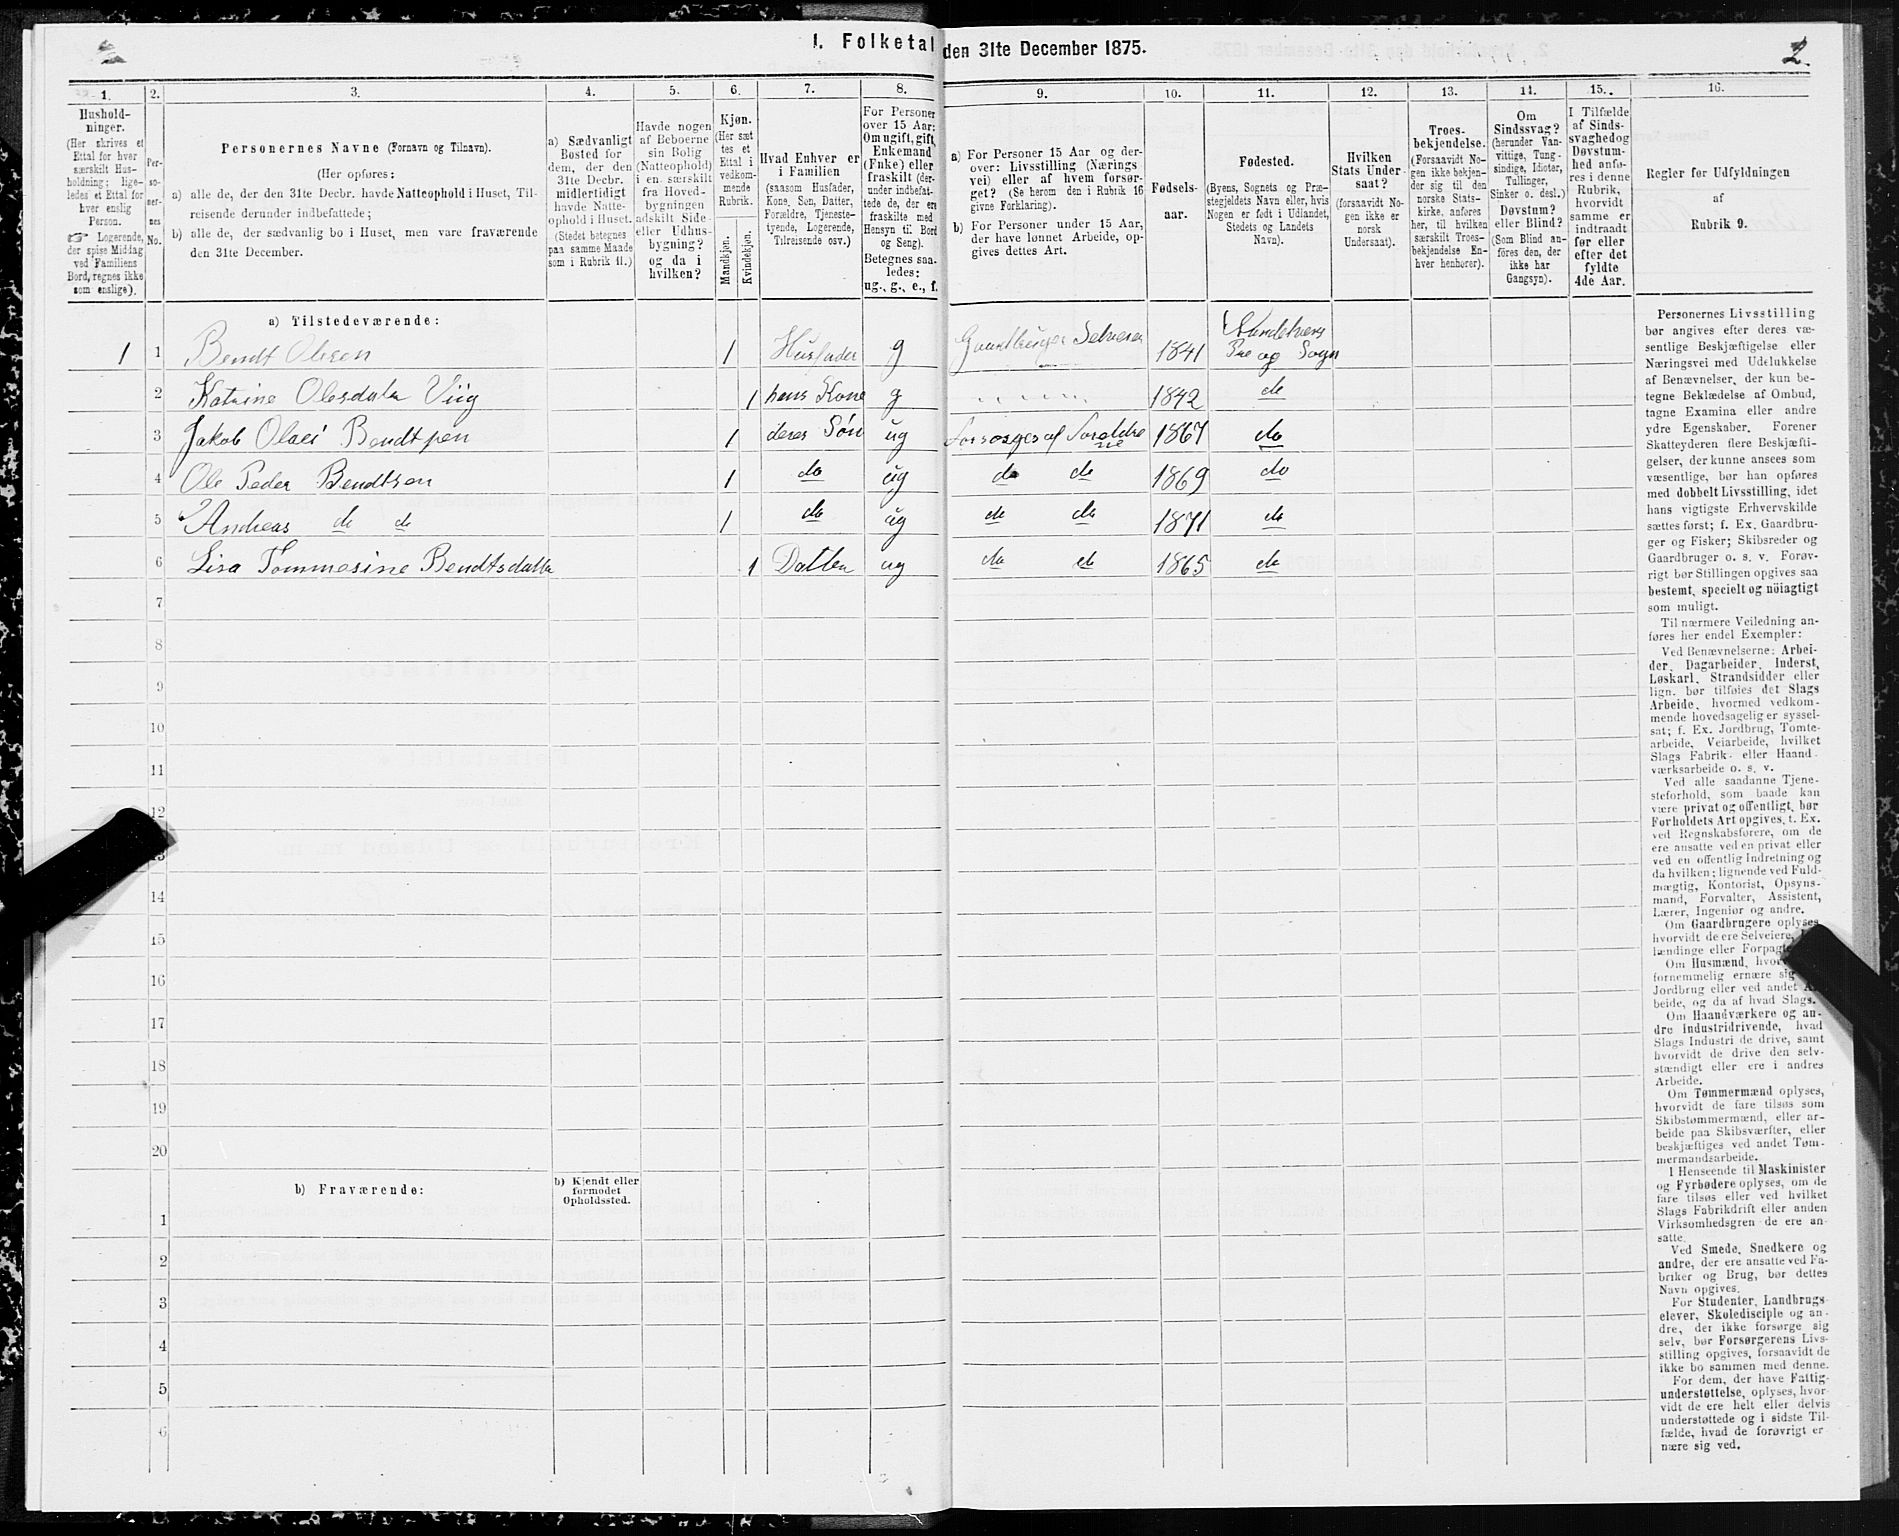 1. Folketal den 31te December 1875.
2.
1.
Hushold-
ninger.
(Her skrives et
Ettal for hver
særskilt Hus-
holdning; lige-
ledes et Ettal for
hver enslig
Person.
☞ Logerende,
der spise Middag
ved Familiens
Bord, regnes ikke
som enslige).
2.
Per-
so-
ner-
nes
No.
3.
Personernes Navne (Fornavn og Tilnavn).
(Her opføres:
a) alle de, der den 31te Decbr. havde Natteophold i Huset, Til-
reisende derunder indbefattede;
b) alle de, der sædvanlig bo i Huset, men vare fraværende
den 31te December.
4.
a) Sædvanligt
Bosted for
dem, der den
31te Decbr.
midlertidigt
havde Natte-
ophold i Huset.
(Stedet betegnes
paa samme Maade
som i Rubrik 11.)
5.
Havde nogen
af Beboerne
sin Bolig
(Natteophold)
i en særskilt
fra Hoved-
bygningen
adskilt Side-
eller Udhus-
bygning?
og da i
hvilken?
6.
Kjøn.
(Her sæt-
tes et
Ettal i
vedkom-
mende
Rubrik.
Mandkjøn.
Kvindekjøn.
7.
Hvad Enhver er
i Familien
(saasom Husfader,
Kone, Søn, Datter,
Forældre, Tjeneste-
tyende, Logerende,
Tilreisende osv.)
8.
For Personer
over 15 Aar:
Om ugift, gift,
Enkemand
(Enke) eller
fraskilt (der-
under indbefat-
tede de, der ere
fraskilte med
Hensyn til Bord
og Seng).
Betegnes saa-
ledes:
ug., g., e., f.
9.
a) For Personer 15 Aar og der-
over: Livsstilling (Nærings-
vei) eller af hvem forsør-
get? (Se herom den i Rubrik 16
givne Forklaring).
b) For Personer under 15 Aar,
der have lønnet Arbeide, op-
gives dettes Art.
10.
Fødsels-
aar.
11.
Fødested.
(Byens, Sognets og Præ-
stegjeldets Navn eller, hvis
Nogen er født i Udlandet,
Stedets og Landets
Navn).
12.
Hvilken
Stats Under-
saat?
(forsaavidt No-
gen ikke er
norsk
Undersaat).
13.
Troes-
bekjendelse.
(Forsaavidt No-
gen ikke bekjen-
der sig til den
norske Stats-
kirke, anføres
her, til hvilken
særskilt Troes-
bekjendelse En-
hver henhører).
14.
Om
Sindssvag?
(herunder Van-
vittige, Tung-
sindige, Idioter,
Tullinger,
Sinker o. desl.)
Døvstum?
eller Blind?
(Som Blind an-
føres den, der
ikke har
Gangsyn).
15.
I Tilfælde
af Sinds-
svaghed og
Døvstum-
hed anfø-
res i denne
Rubrik,
hvorvidt
samme er
indtraadt
før eller
efter det
fyldte
4de Aar.
16.
Regler for Udfyldningen
af
Rubrik 9.
a) Tilstedeværende:
1 1 Bendt Olesen 1 Husfader g Gaardbruger Selveier 1841 Præ og Sogn
2 Katrine Olesdater Viig 1 hans Kone g 1842 do
3 Jakob Olaei Bendtsen 1 deres Søn ug Forsørges af Foreldre ne 1867 do
4 Ole Peder Bendtsen 1 do ug do do 1869 do
5 Andreas do do 1 do ug do do 1871 do
6 Lisa Tommesine Bendtsdatter 1 Datter ug do do 1865 do
7
8
9
10
11
12
13
14
15
16
17
18
19
20
b) Fraværende:
b) Kjendt eller
formodet
Opholdssted.
1
2
3
4
5
6
Personernes Livsstilling
bør angives efter deres væ-
sentlige Beskjæftigelse eller
Næringsvei med Udelukkelse
af Benævnelser, der kun be-
tegne Beklædelse af Ombud,
tagne Examina eller andre
ydre Egenskaber. Forener
Skatteyderen flere Beskjæfti-
gelser, der kunne ansees som
væsentlige, bør han opføres
med dobbelt Livsstilling, idet
hans vigtigste Erhvervskilde
sættes først; f. Ex. Gaardbru-
ger og Fisker; Skibsreder og
Gaardbruger o. s. v. Forøv-
rigt bør Stillingen opgives saa
bestemt, specielt og nöiagtigt
som muligt.
Til nærmere Veiledning an-
føres her endel Exempler:
Ved Benævnelserne: Arbei-
der, Dagarbeider, Inderst,
Løskarl, Strandsidder eller
lign. bør tilføies det Slags
Arbeide, hvormed vedkom-
mende hovedsagelig er syssel-
sat; f. Ex. Jordbrug, Tomte-
arbeide, Veiarbeide, hvilket
Slags Fabrik- eller Haand-
værksarbeide o. s. v.
Ved alle saadanne Tjene-
steforhold, som baade kan
være privat og offentligt, bør
Forholdets Art opgives, f. Ex.
ved Regnskabsførere, om de
ere ansatte ved en privat eller
ved en offentlig Indretning og
da hvilken; lignende ved Fuld-
mægtig, Kontorist, Opsyns-
mand, Forvalter, Assistent,
Lærer, Ingeniør og andre.
Om Gaardbrugere oplyses,
hvorvidt de ere Selveiere,
lændinge eller
Om Husmænd,
fornemmelig ernære sig
Jordbrug eller ved andet Ar-
beide, og da af hvad Slags.
Om Haandværkere og an-
dre Industridrivende, hvad
Slags Industri de drive, samt
hvorvidt de drive den selv-
stændigt eller ere i andres
Arbeide.
Om Tømmermænd oplyses,
hvorvidt de fare tilsøs som
Skibstømmermænd, eller ar-
beide paa Skibsværfter, eller
beskjæftiges ved andet Tøm-
mermandsarbeide.
I Henseende til Maskinister
og Fyrbødere oplyses, om de
fare tilsøs eller ved hvilket
Slags Fabrikdrift eller anden
Virksomhedsgren de ere an-
satte.
Ved Smede, Snedkere og
andre, der ere ansatte ved Fa-
briker og Brug, bør dettes
Navn opgives.
For Studenter, Landbrugs-
elever, Skoledisciple og an-
dre, der ikke forsørge sig
selv, bør Forsørgerens Livs-
stilling opgives, forsaavidt de
ikke bo sammen med denne.
For dem, der have Fattig-
understøttelse, oplyses, hvor-
vidt de ere helt eller delvis
understøttede og i sidste Til-
fælde, hvad de forøvrigt er-
nære sig ved.